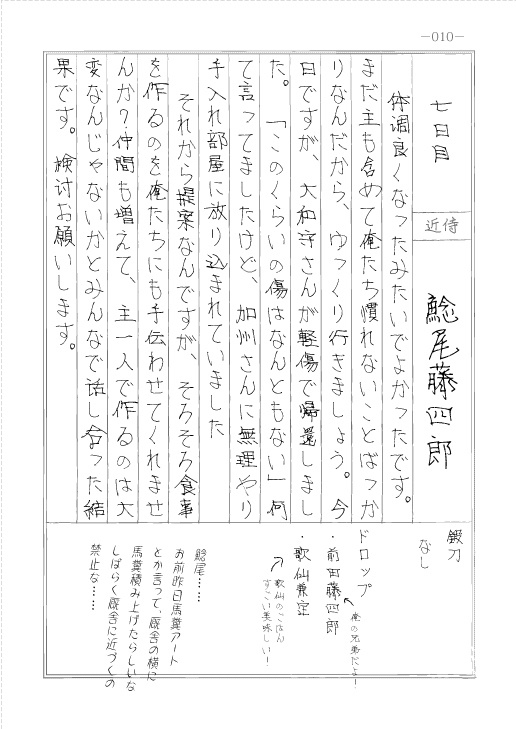 －010－
七日目
近侍
鯰尾藤四郎
体調良くなったみたいでよかったです。
まだ主も含めて俺たち慣れないことばっか
りなんだから、ゆっくり行きましょう。今
日ですが、大和守さんが軽傷で帰還しまし
た。「このくらいの傷はなんともない」何
て言ってましたけど、加州さんに無理やり
手入れ部屋に放り込まれていました
それから提案なんですが、そろそろ食事
を作るのを俺たちにも手伝わせてくれませ
んか？仲間も増えて、主一人で作るのは大
変なんじゃないかとみんなで話し合った結
果です。検討お願いします。
鍛刀
なし
ドロップ
・前田藤四郎
俺の兄弟だよ！
・歌仙兼定
歌仙のごはん
すごい美味しい！
鯰尾……
お前昨日馬糞アート
とか言って、厩舎の横に
馬糞積み上げたらしいな
しばらく厩舎に近づくの
禁止な……